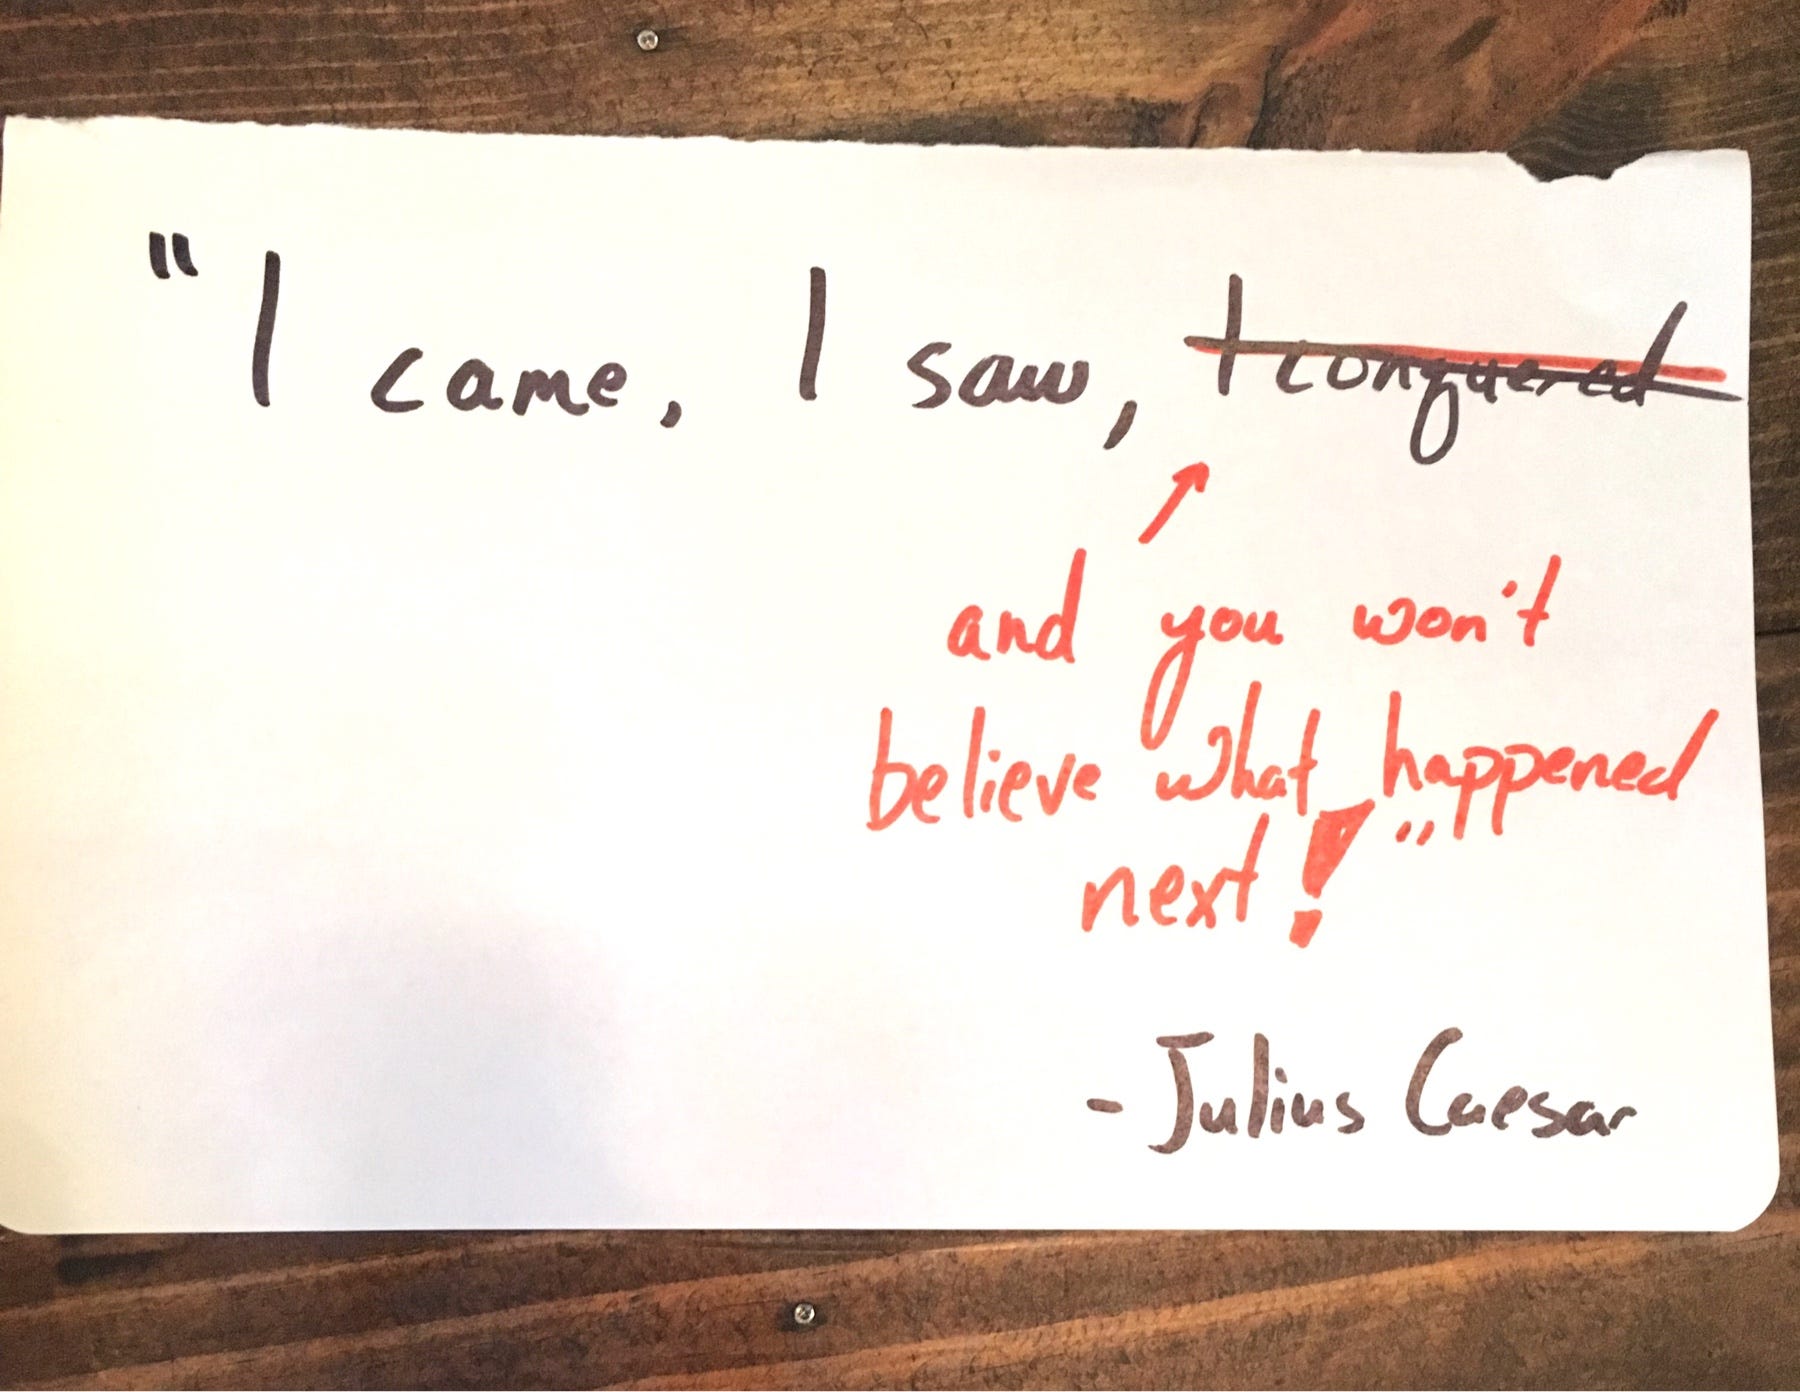 "I came, I saw, I conquered
and you won't
believe what happened
next!"
- Julius Caesar